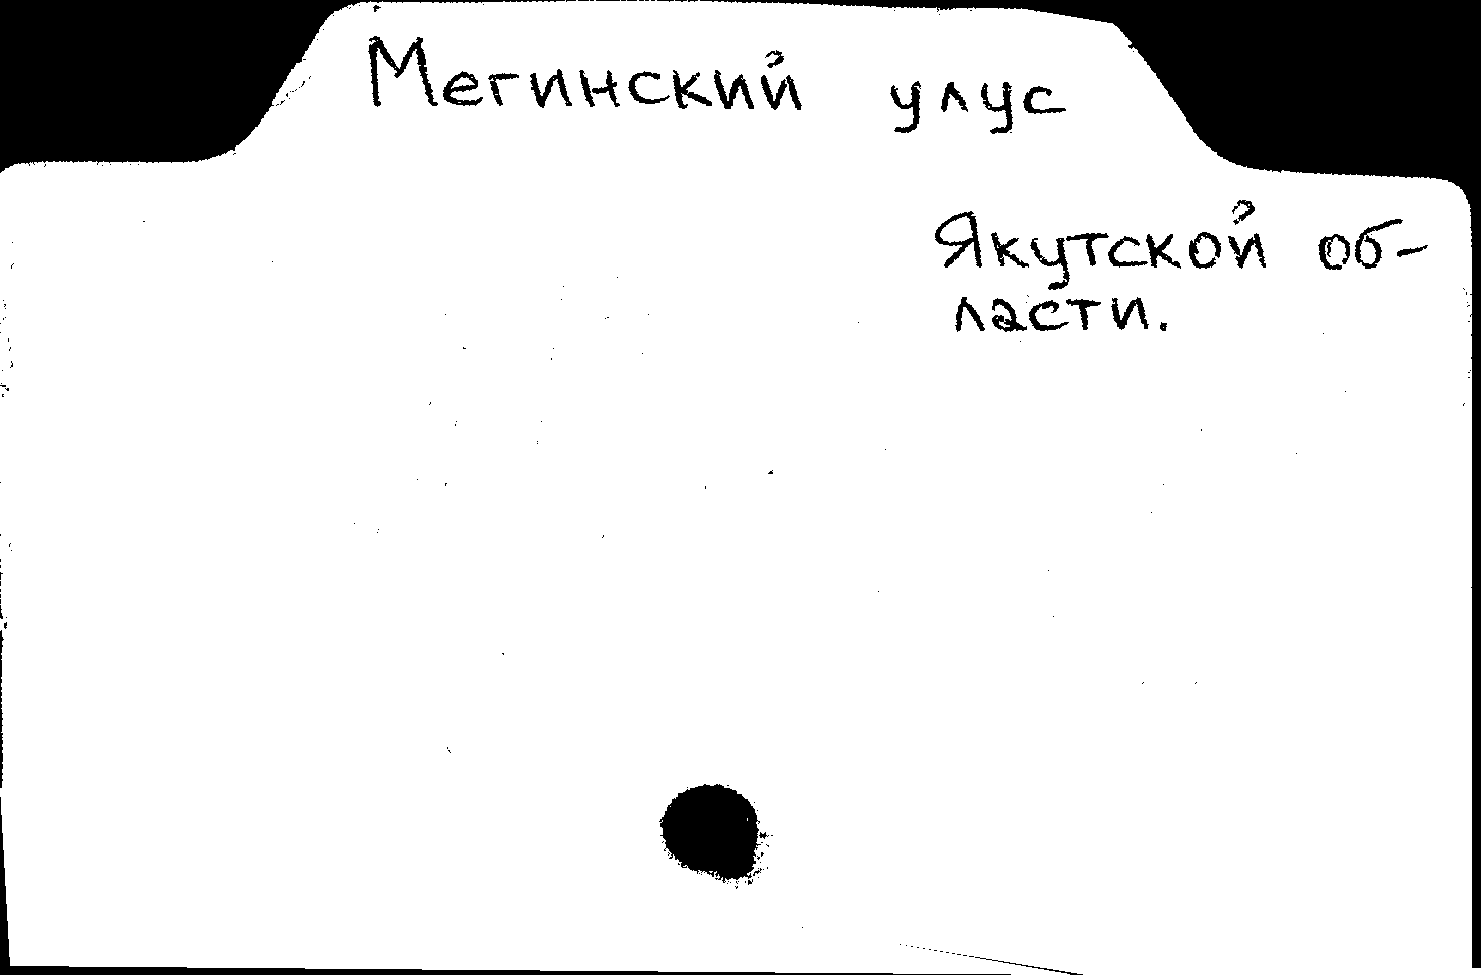 Мегинский улус
Якутской об-
ласти.